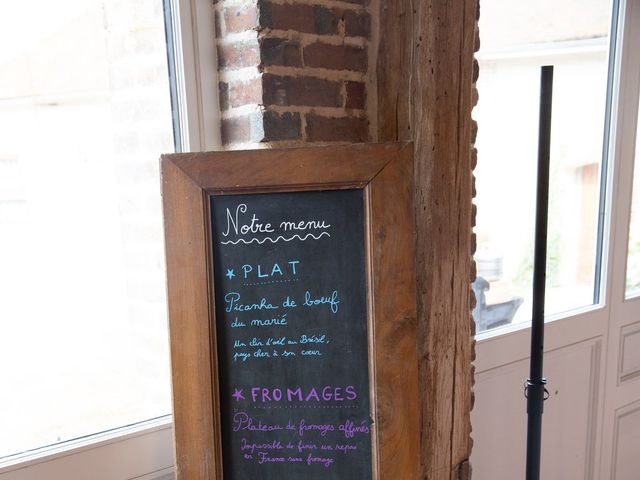 Notre menu
★ PLAT
Picanha de boeuf
du marié
Un clin d'oeil au Brésil,
pays cher à son coeur
★ FROMAGES
Plateau de fromages affinés
Impossible de finir un repas
en France sans fromage